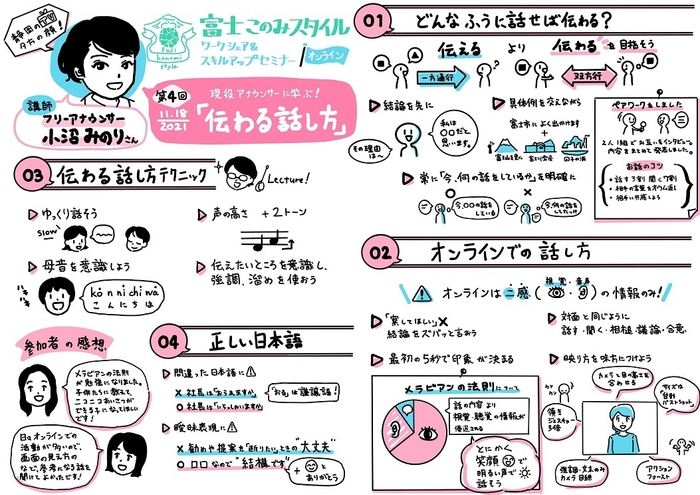 静岡の
夕方の顔!
講師
フリーアナウンサー
小沼 みのりさん
Fuji
konomi
style
富士このみスタイル
ワークシェア&
スキルアップセミナー
オンライン
第4回
11.18
2021
現役アナウンサーに学ぶ!
「伝わる話し方」
01 どんなふうに話せば伝わる?
伝える より 伝わる を目指そう
一方通行
双方行
結論を先に
私は
〇〇だと
思います。
その理由
は〜
具体例を交えながら
富士市によく出かけます
+
常に「今、何の話をしているか」を明確に
今、〇〇の話を
している
今、何の話を
ペアワークをしました
2人1組でお互いをインタビュー。
内容をまとめて発表しました。
お話のコツ
・話す3割 聞く7割
・相手の言葉をオウム返し
03 伝わる話し方テクニック
Lecture!
ゆっくり話そう
slow
声の高さ +2トーン
母音を意識しよう
ハキ
ハキ
kōnnichiwā
こんにちは
伝えたいところを意識し、
強調、溜めを使おう
02 オンラインでの話し方
オンラインは二感(視覚・音声)の情報のみ!
「察してほしい」×
結論をズバッと言おう
対面と同じように
話す・聞く・相槌・議論・合意
最初の5秒で印象が決まる
メラビアンの法則について
話の内容より
視覚・聴覚の情報が
優返される
とにかく
笑顔で
明るい声で
話そう
映り方を味方につけよう
カメラと目の高さを
合わせる
サイズは
自動
バストショット。
頷き
ジェスチャー
3倍
強調・文末のみ
カメラ目線
アクション
ファースト
参加者の感想
メラビアンの法則
が勉強になりました。
子供たちに教えて、
ニコニコあいさつが
できる子になってほしい
です!
日々オンラインでの
活動が多いので、
画面の見え方の
など、参考になる話を
聞けてよかったです!
04 正しい日本語
間違った日本語に
× 社長は「おられますか」
〇 社長は「いらっしゃいますか」
「おる」は謙譲語!
曖昧表現に
× 勧めや提案を「断りたい」ときの"大丈夫"
〇 □□なので"結構です"
+
と
ありがとう